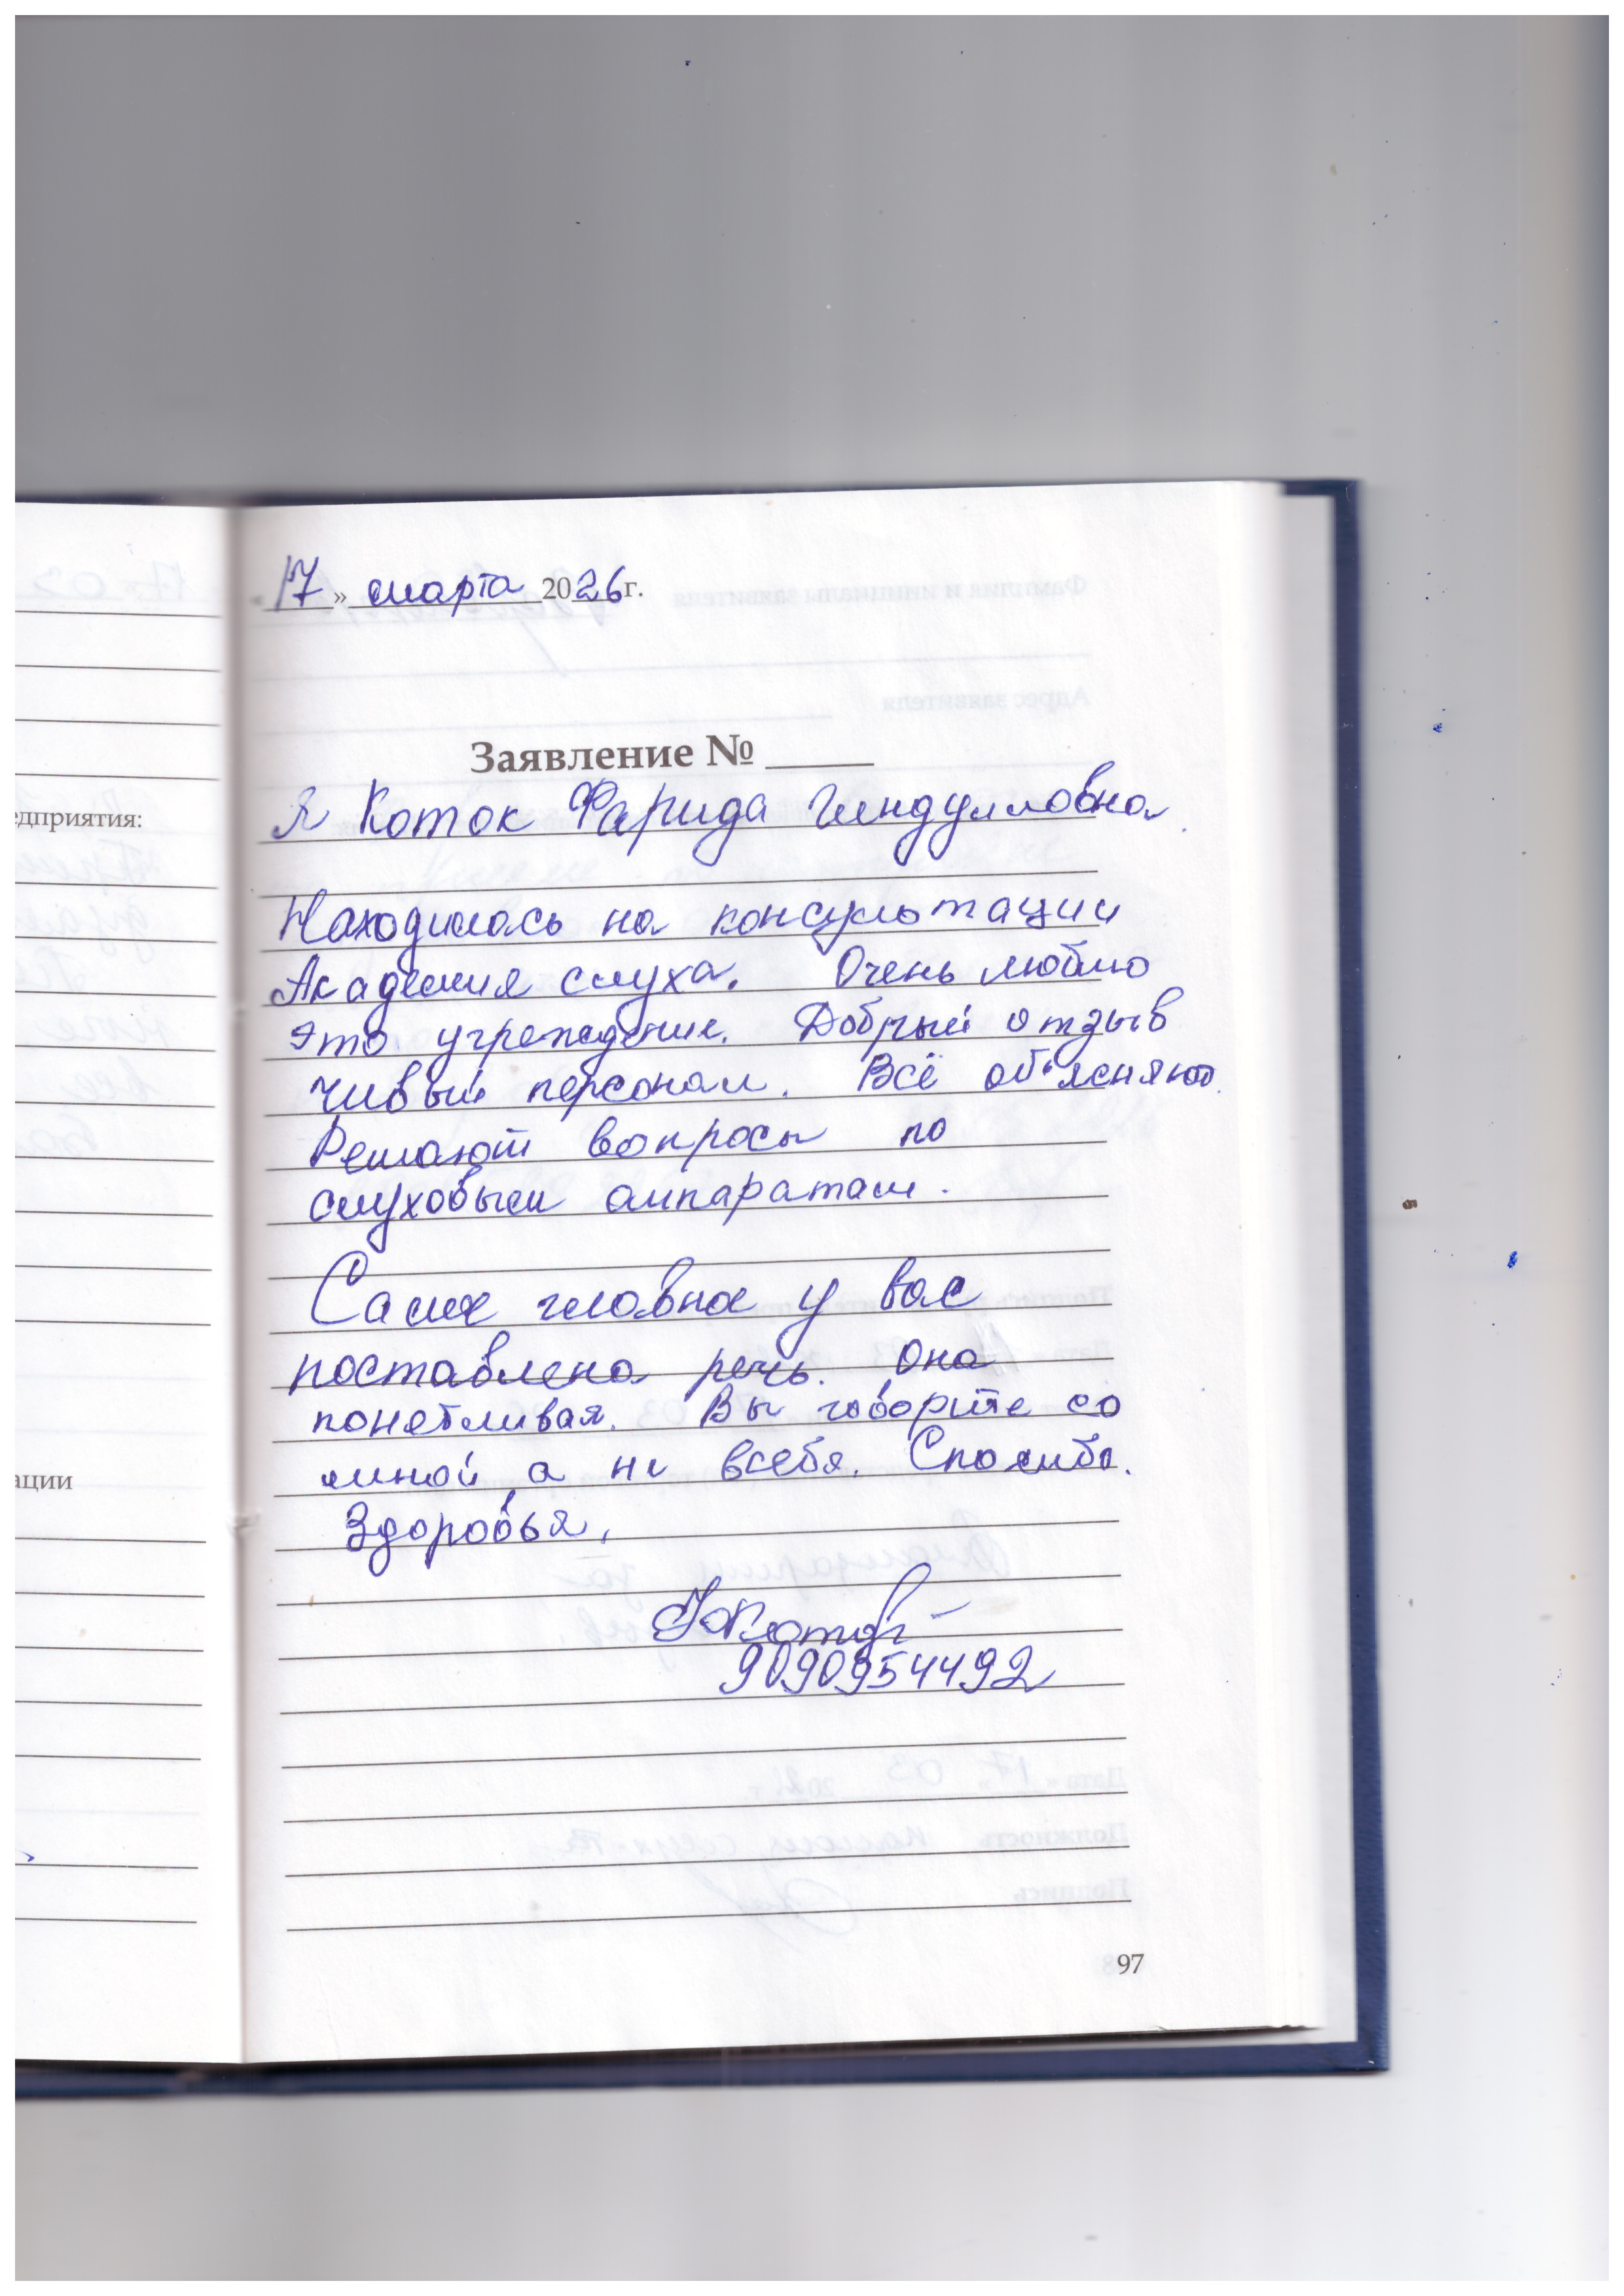 «17» марта 2026 г.
Заявление №
Я Коток Фарида Гиндулловна
едприятия:
Находилась на консультации
Академия слуха. Очень люблю
это учреждение. Добрый отзыв
чивый персонал. Всё объясняют.
Решают вопросы по
слуховым аппаратам.
Самое главное у вас
поставлена речь. Она
понятливая. Вы говорите со
мной а не всебя. Спасибо.
ации
Здоровья.
9090954492
97